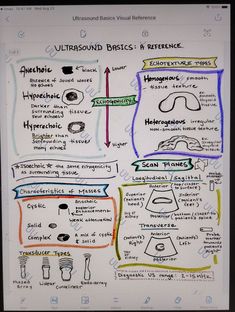 Ultrasound Basics Visual Reference
ULTRASOUND BASICS: A REFERENCE
Anechoic
Black
Absence of sound waves
no echoes
Hypoechoic
Darker than
surrounding tissue
few echoes
Hyperechoic
Brighter than
surrounding tissues
many echoes
Higher
ECHOGENICITY
Lower
ECHOTEXTURE TYPES
Homogenous: smooth
tissue texture
Heterogenous: irregular
non-smooth tissue texture
* Isoechoic * the same echogenicity
as surrounding tissue
Characteristics of Masses
Cystic
Anechoic
posterior
enhancement
Solid
Complex
A mix of cystic
& solid
SCAN PLANES
Longitudinal / Sagittal
Anterior
Superior
(patient's
head)
Inferior
(patient's
feet)
Posterior
Transverse
Anterior
(patient's)
Right
(patient's)
Left
Posterior
Transducer Types
Phased
Array
Linear
Curvilinear
Endo-array
Diagnostic US range: 2-15 MHz